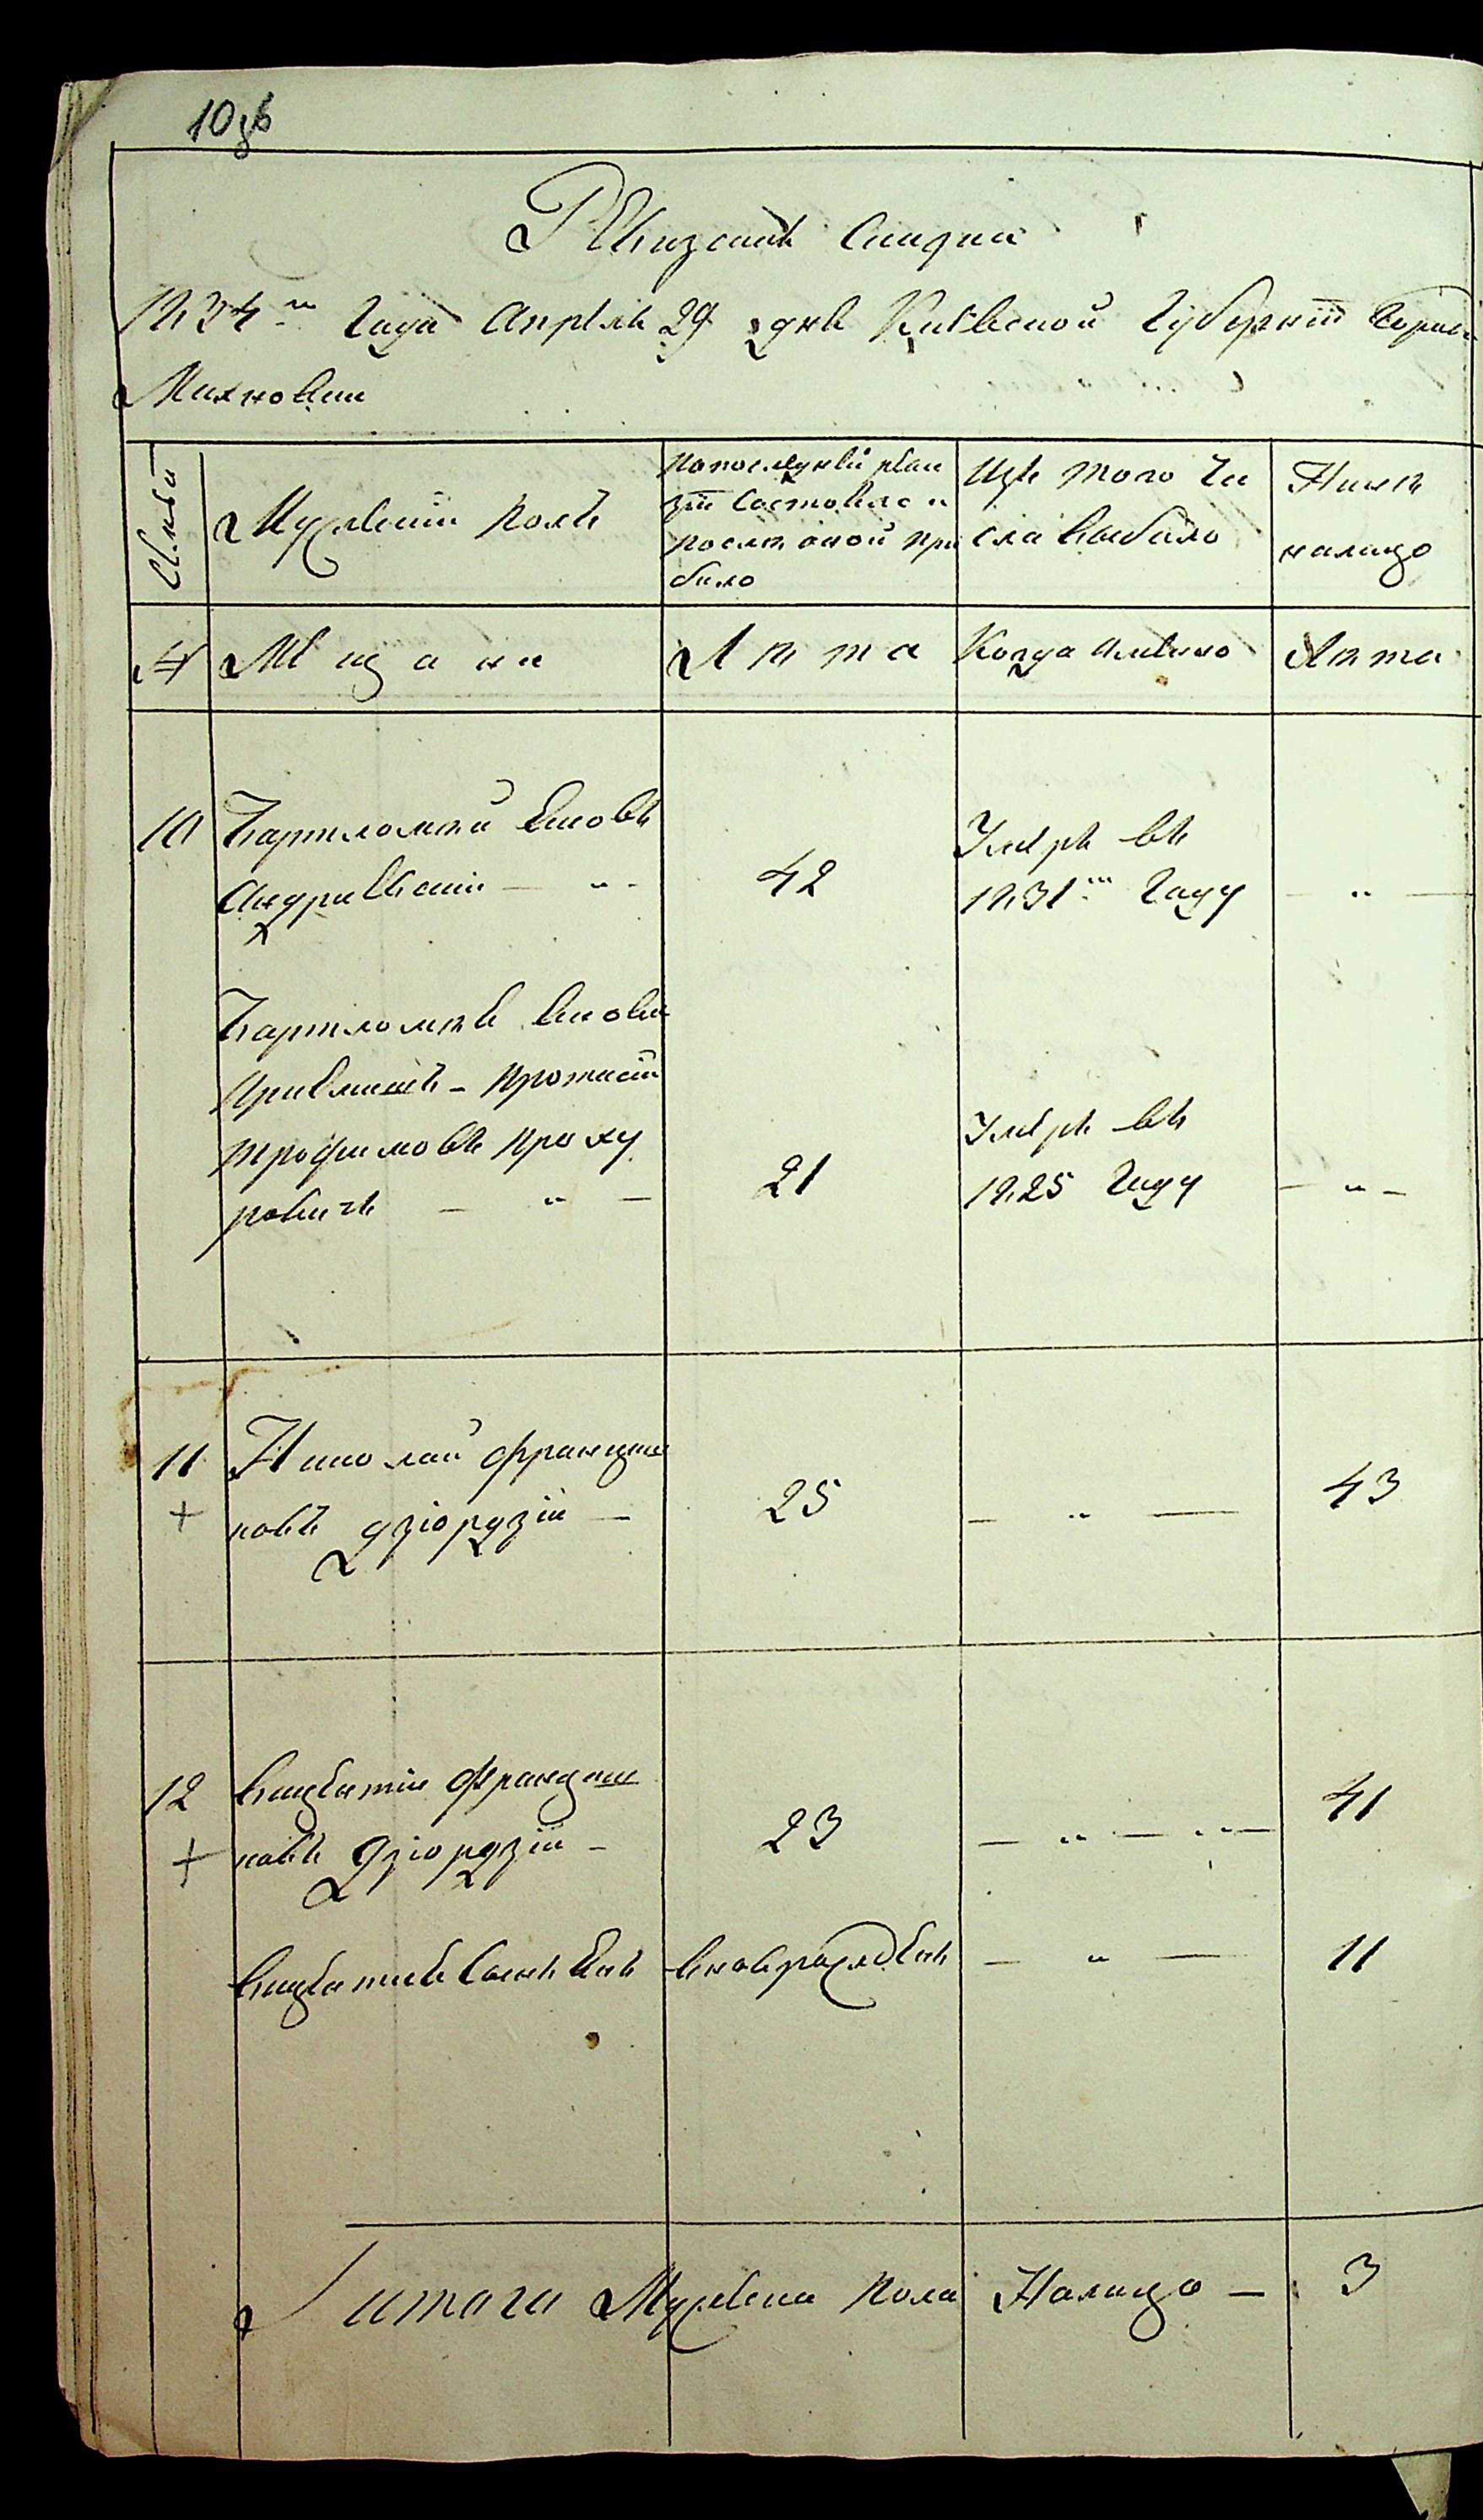 10зв
Ревизская Сказка
1834го Года Апреля 29 дня Киевской Губернии Города
Махновки
Семьи
Мужеский полъ
По последней реви
зіи Состояло и
после оной при
было
Изъ того Чи
сла выбыло
Ныне
налицо
№
Мещане
Лета
Когда имянно
Лета
10
Бартломей
Андриевский — " -
42
Умеръ въ
1831м Году
— " —
Бартломея
Приемышъ - Протасий
Трофимовъ Проху
ровичъ — " —
21
Умеръ въ
1825 Году
— " —
11
Николай Францыш
ковъ Дзюрдзій —
25
— " —
43
+
12
Викентій Францыш
ковъ Дзюрдзій -
23
— " — " —
41
+
Викентія Сынъ Янъ
вноврожденъ
— " —
11
Итого Мужеска пола Налицо — 3